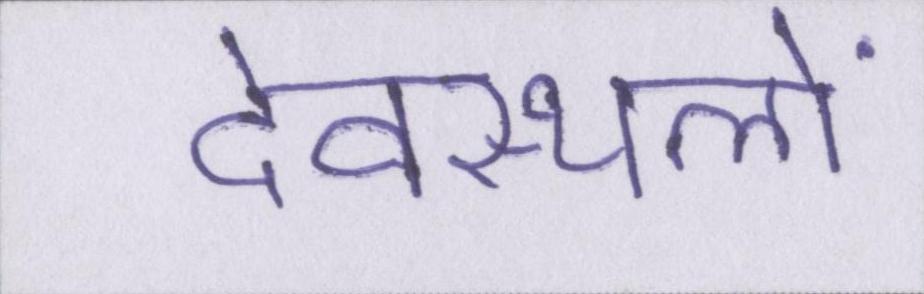 देवस्थलों